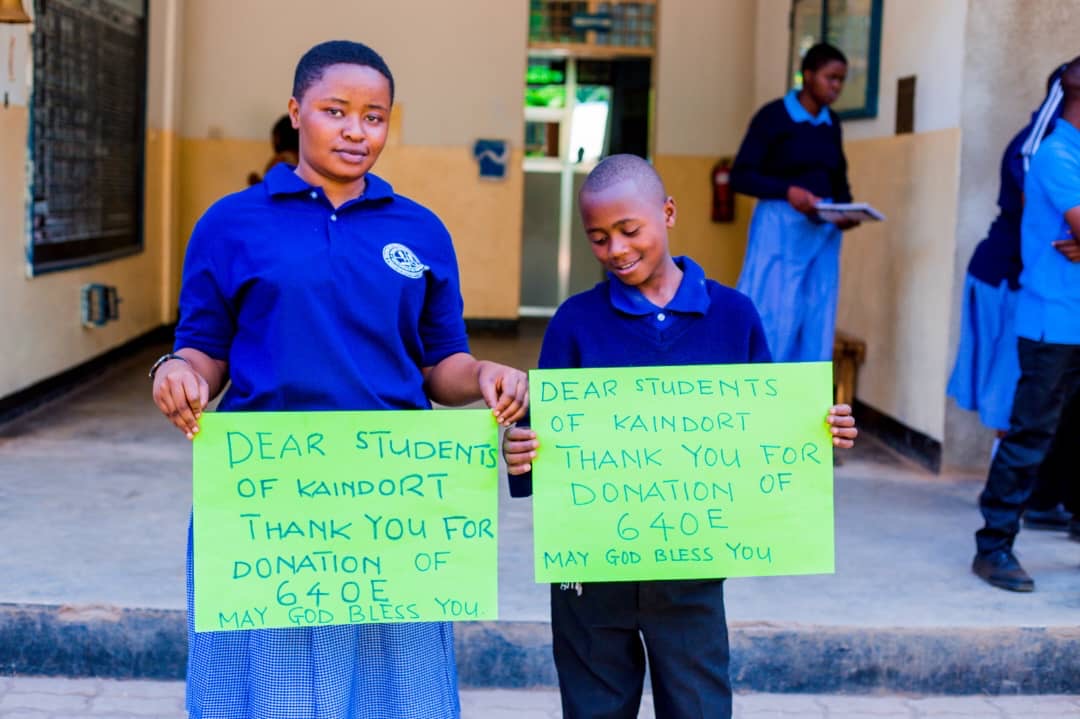 DEAR STUDENTS
OF KAINDORT
THANK YOU FOR
DONATION OF
640E
MAY GOD BLESS YOU.
DEAR STUDENTS
OF KAINDORT
THANK YOU FOR
DONATION OF
640E
MAY GOD BLESS YOU